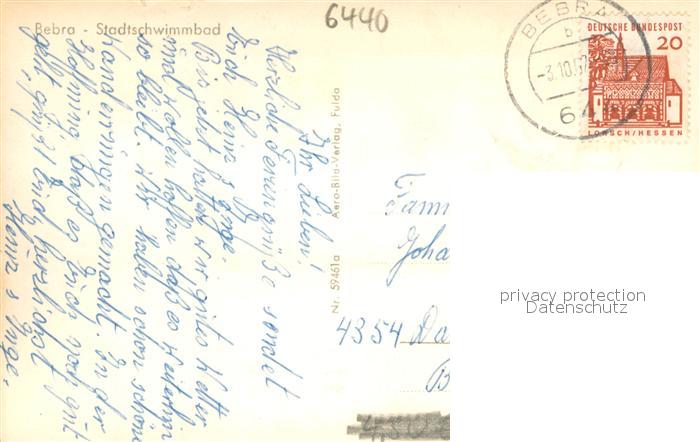 6440
Bebra - Stadtschwimmbad
Ihr Lieben!
Herzliche Feriengrüße sendet
Euch Heinz & Inge.
Bis jetzt hatten wir gutes Wetter
und wollen hoffen daß es weiterhin
so bleibt. Wir haben schon schöne
Wanderungen gemacht. In der
Hoffnung daß es Euch noch gut
geht, grüßt Euch herzlichst
Heinz & Inge.
Aero-Bild-Verlag, Fulda
Nr. 59461a
BEBRA
b
-3.10.67
DEUTSCHE BUNDESPOST
20
LORSCH/HESSEN
Fam
Joha
4354 Da
B
privacy protection
Datenschutz